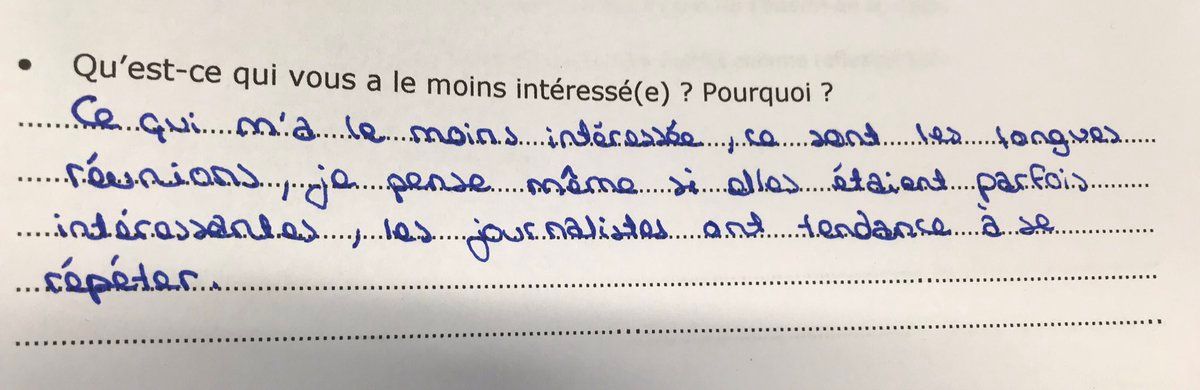 • Qu'est-ce qui vous a le moins intéressé(e) ? Pourquoi ?
Ce qui m'a le moins intéressée, ce sont les longues
réunions, je pense même si elles étaient parfois
intéressantes, les journalistes ont tendance à se
répéter.